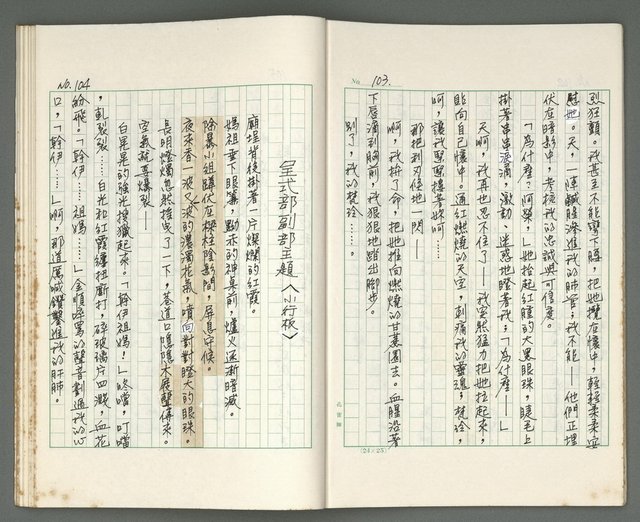 No. 103.
烈狂顫。我甚至不能彎下腰,把她攬在懷中,輕輕柔柔安
慰她。天,一陣鹹腥滲進我的肺管,我不能——他們正埋
伏在暗影中,考核我的忠誠與可信度。
「為什麼?阿榮,」她抬起紅腫的大黑眼珠,睫毛上
掛著串串淚滴,激動、迷惑地瞪著我,「為什麼——」
天啊,我再也忍不住了——我突然猛力把她拉起來,
貼向自己懷中。通紅燃燒的天空,刺痛我的靈魂,梵珍,
呵,讓我緊緊摟著妳呵……
那把利刃倏地一閃——
啊,我拚了命,把她推向燃燒的甘蔗園去。血腥沿著
下唇滴到胸前,我狠狠地踏出腳步。
別了,我的梵珍……。
(24×25)
No. 104
呈式部副部主題〈小行板〉
廟埕背後掛著一片燦爛的紅霞。
媽祖垂下眼簾,黝赤的神桌前,爐火逐漸暗滅。
除暴小組蹲伏在樑柱陰影間,屏息守候。
夜來香一波又波的濃濁花氣,噴向對對瞪大的眼珠。
長明燈燭忽然搖曳了一下,巷道口隱隱大展聲傳來。
空氣就要爆裂——
白晃晃的強光撩獵起來。「幹伊祖媽!」咚噹,叮噹
,軋裂裂……白光和紅霞纏扭斷打,碎玻璃片四濺,血花
紛飛。「幹伊……祖媽……」金順咩罵的聲音劃過我的心
口,「幹伊……」啊,那道厲喊鑽鑿進我的肝肺。